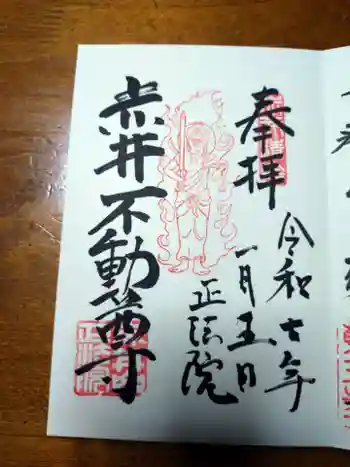 奉拝
令和七年
一月五日
正法院
赤井不動尊